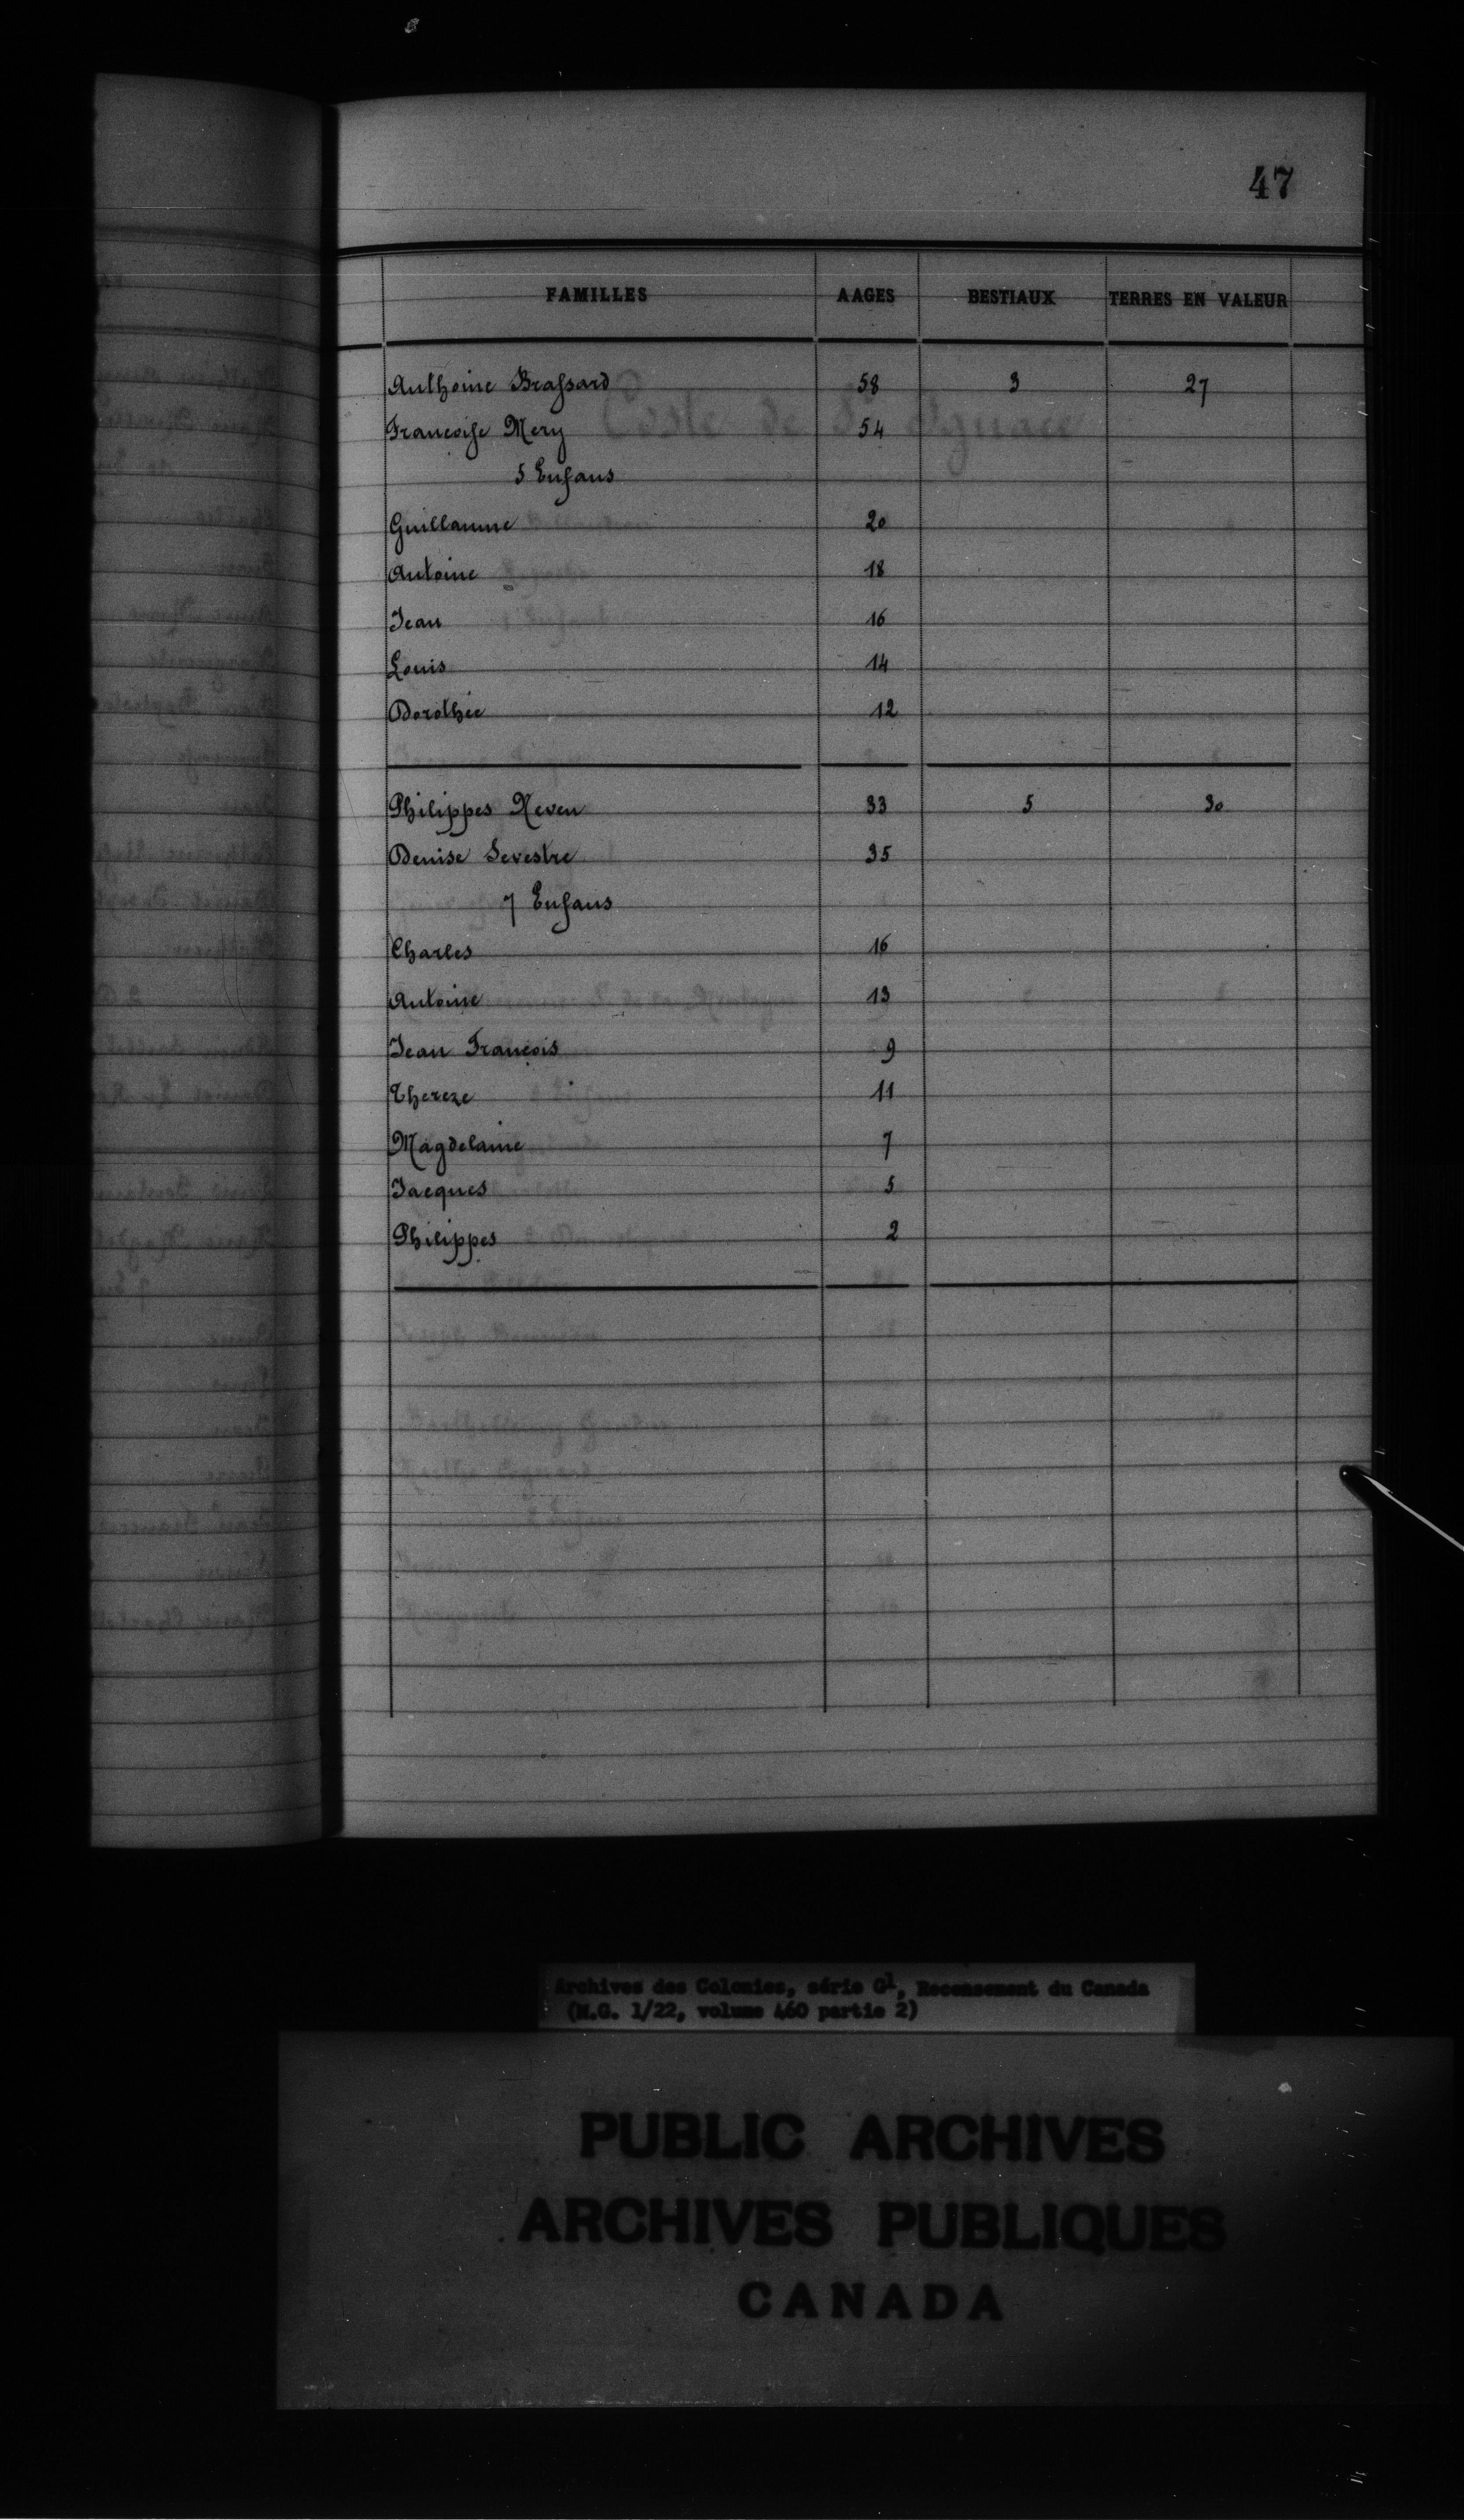 47
FAMILLES AAGES BESTIAUX TERRES EN VALEUR
Anthoine Brassard 58 3 27
Francoise Mery 54
5 Enfans
Guillaume 20
Antoine 18
Jean 16
Louis 14
Dorothée 12
Philippes Neveu 33 5 30
Denise Sevestre 35
7 Enfans
Charles 16
Antoine 13
Jean François 9
Thereze 11
Magdelaine 7
Jacques 5
Philippes 2
Archives des Colonies, série G1, Recensement du Canada
(M.G. 1/22, volume 460 partie 2)
PUBLIC ARCHIVES
ARCHIVES PUBLIQUES
CANADA